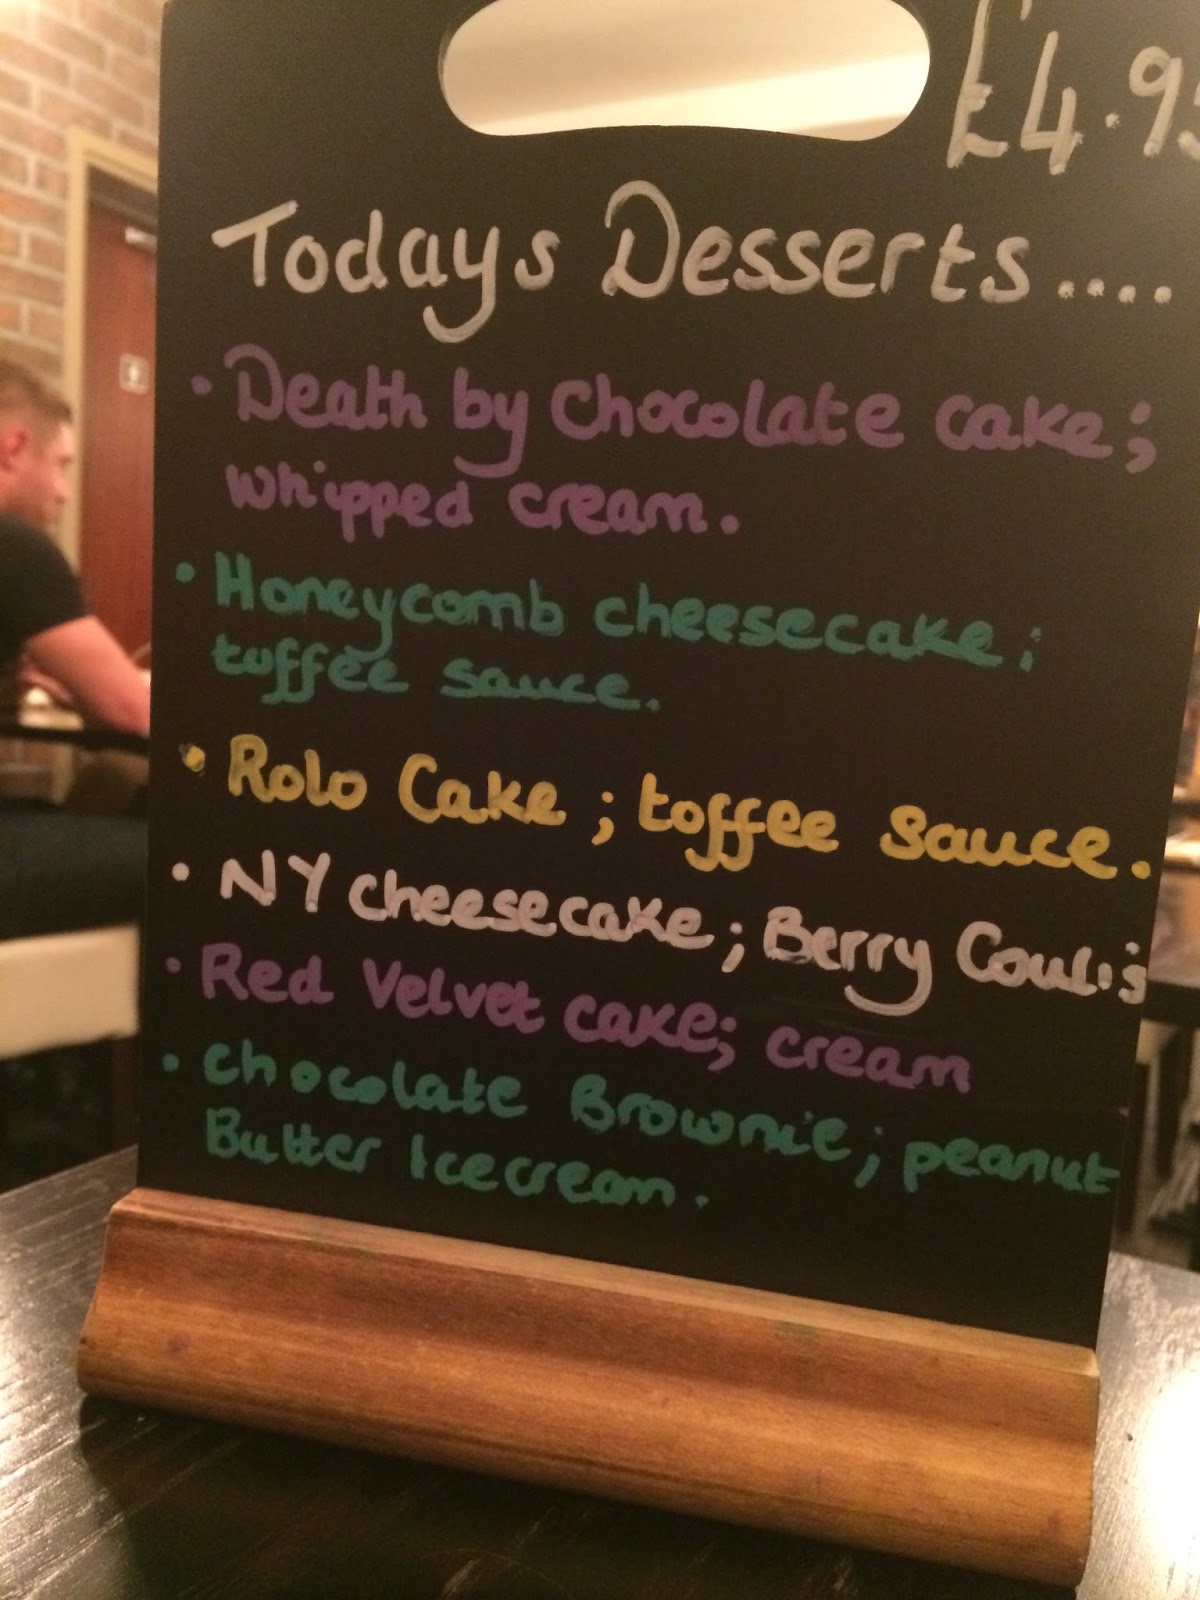 £4.95
Todays Desserts....
• Death by Chocolate cake;
whipped cream.
• Honeycomb cheesecake;
toffee sauce.
• Rolo Cake; toffee sauce.
• NY cheesecake; Berry Coulis
• Red Velvet cake; cream
• Chocolate Brownie; peanut
Butter Icecream.